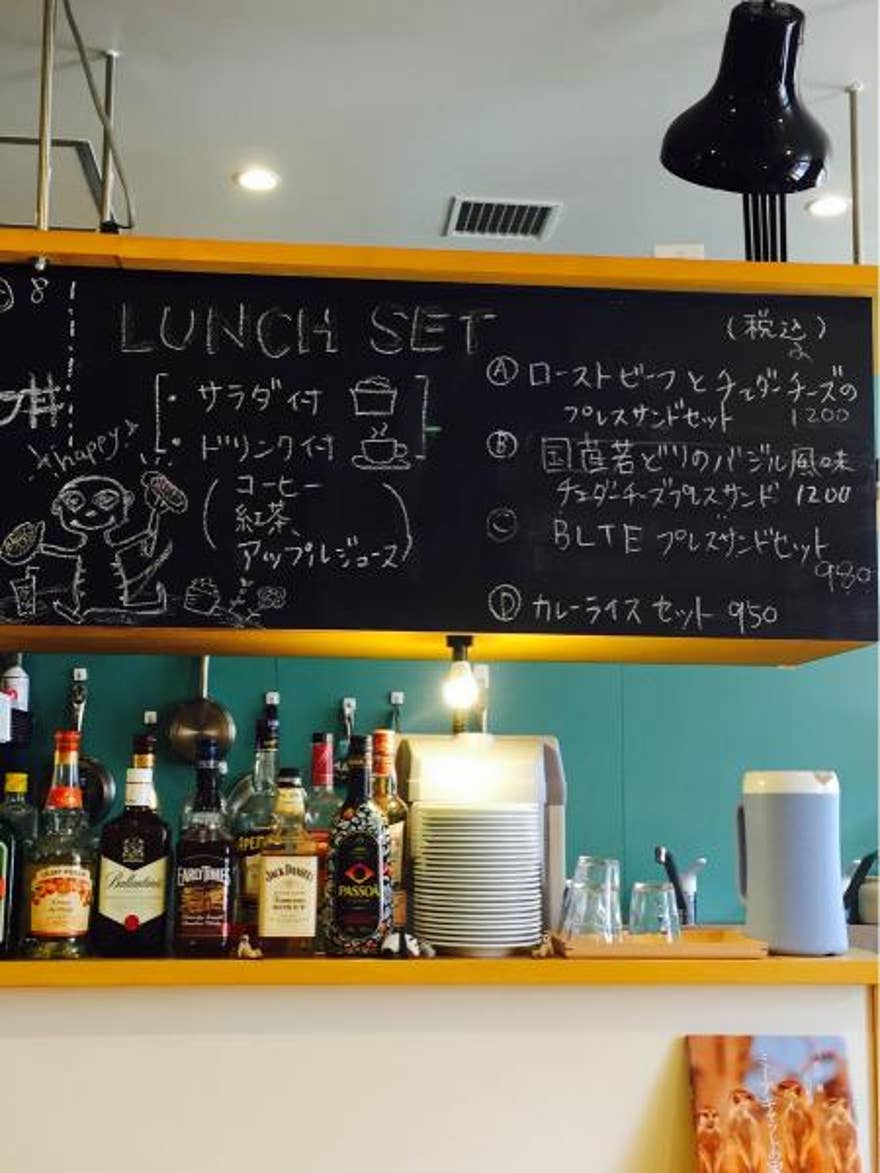 8
丼
happy
LUNCH SET
・サラダ付
・ドリンク付
(コーヒー
紅茶、
アップルジュース)
(税込)
Ⓐ ローストビーフとチェダーチーズの
プレスサンドセット 1200
Ⓑ 国産若どりのバジル風味
チェダーチーズプレスサンド 1200
Ⓒ BLTE プレスサンドセット
980
Ⓓ カレーライスセット 950
Ballantine's
EARLY TIMES
APEROL
JACK DANIEL'S
TENNESSEE
HONEY
PASSOÃ